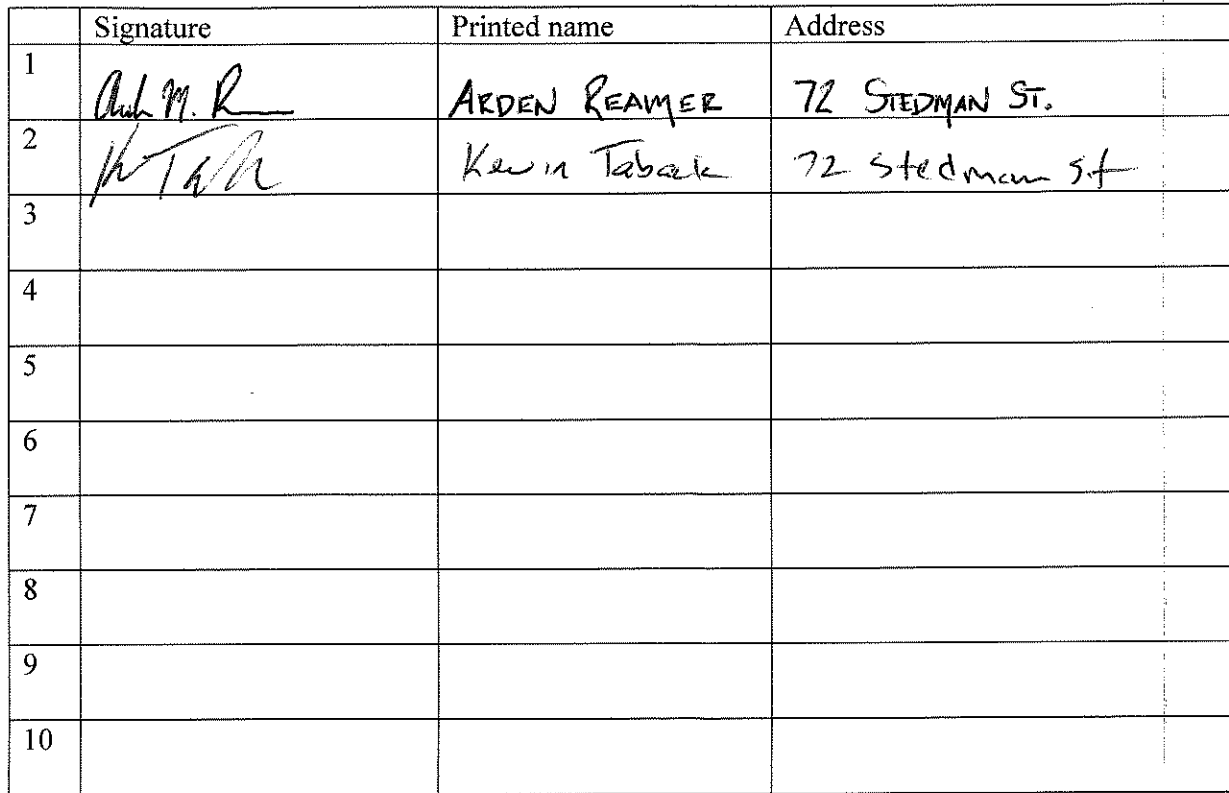 Signature Printed name Address
1 ARDEN REAMER 72 STEDMAN ST.
2 Kevin 72 Stedman St
3
4
5
6
7
8
9
10